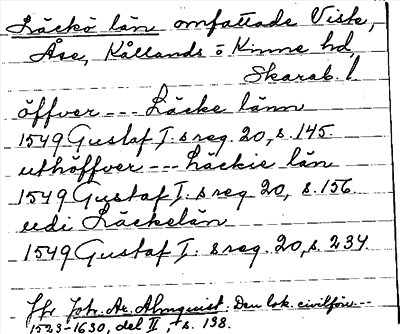 Läckö län omfattade Viste,
Åse, Kållands o Kinne hd,
Skarab. l.
öffver --- Läcke länn
1549 Gustaf I:s reg. 20, s. 145.
uthöffver --- Läckie län
1549 Gustaf I:s reg 20, s. 156.
udi Läckelän
1549 Gustaf I:s reg. 20, s. 234.
Jfr Joh. Ax. Almquist. Den lok. civilförv---
1523-1630, del II, s. 138.